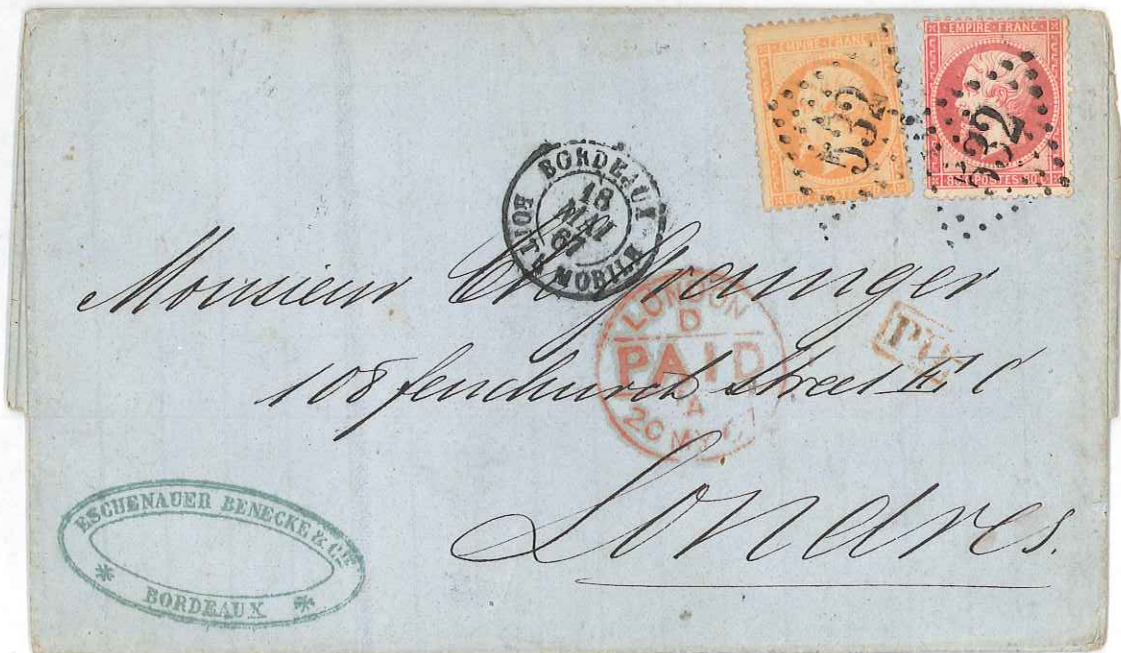 EMPIRE FRANC
EMPIRE FRANC
532
532
80 POSTES 80
BORDEAUX
18
MAI
67
BOITE MOBILE
Monsieur Ch Grainger
LONDON
D
PAID
A
20 MY 67
108 fenchurch street E C
Londres.
ESCHENAUER BENECKE & CIE
BORDEAUX